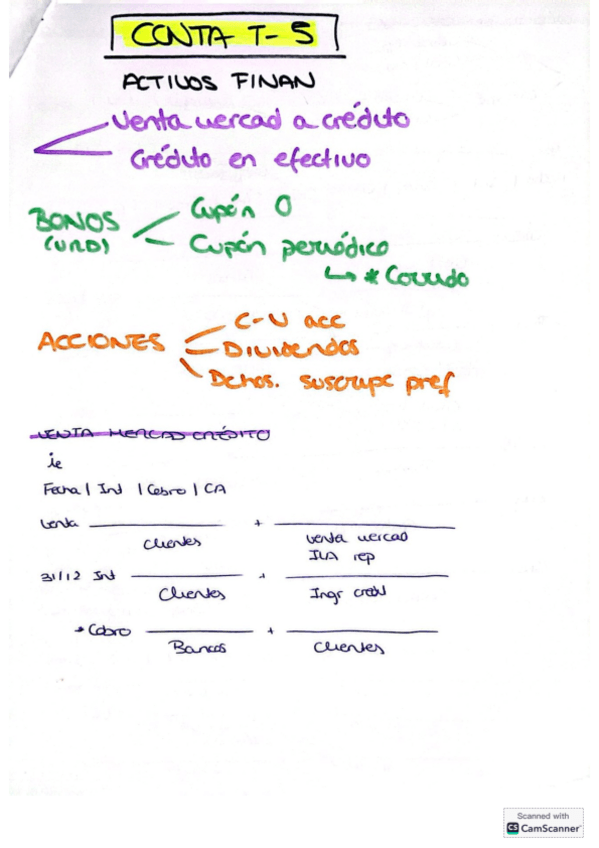 CONTA T-5
ACTIVOS FINAN
Venta mercad a crédito
Crédito en efectivo
BONOS
Cupón 0
Cupón periódico
↳ * Corrido
ACCIONES
C-V acc
Dividendos
Dchos. suscripc pref
VENTA MERCAD CRÉDITO
ie
Fecha | Int | Cobro | CA
Venta + 
Clientes venta mercad
IVA rep
31/12 Int +
Clientes Ingr cred
Cobro +
Bancos Clientes
Scanned with
CS CamScanner